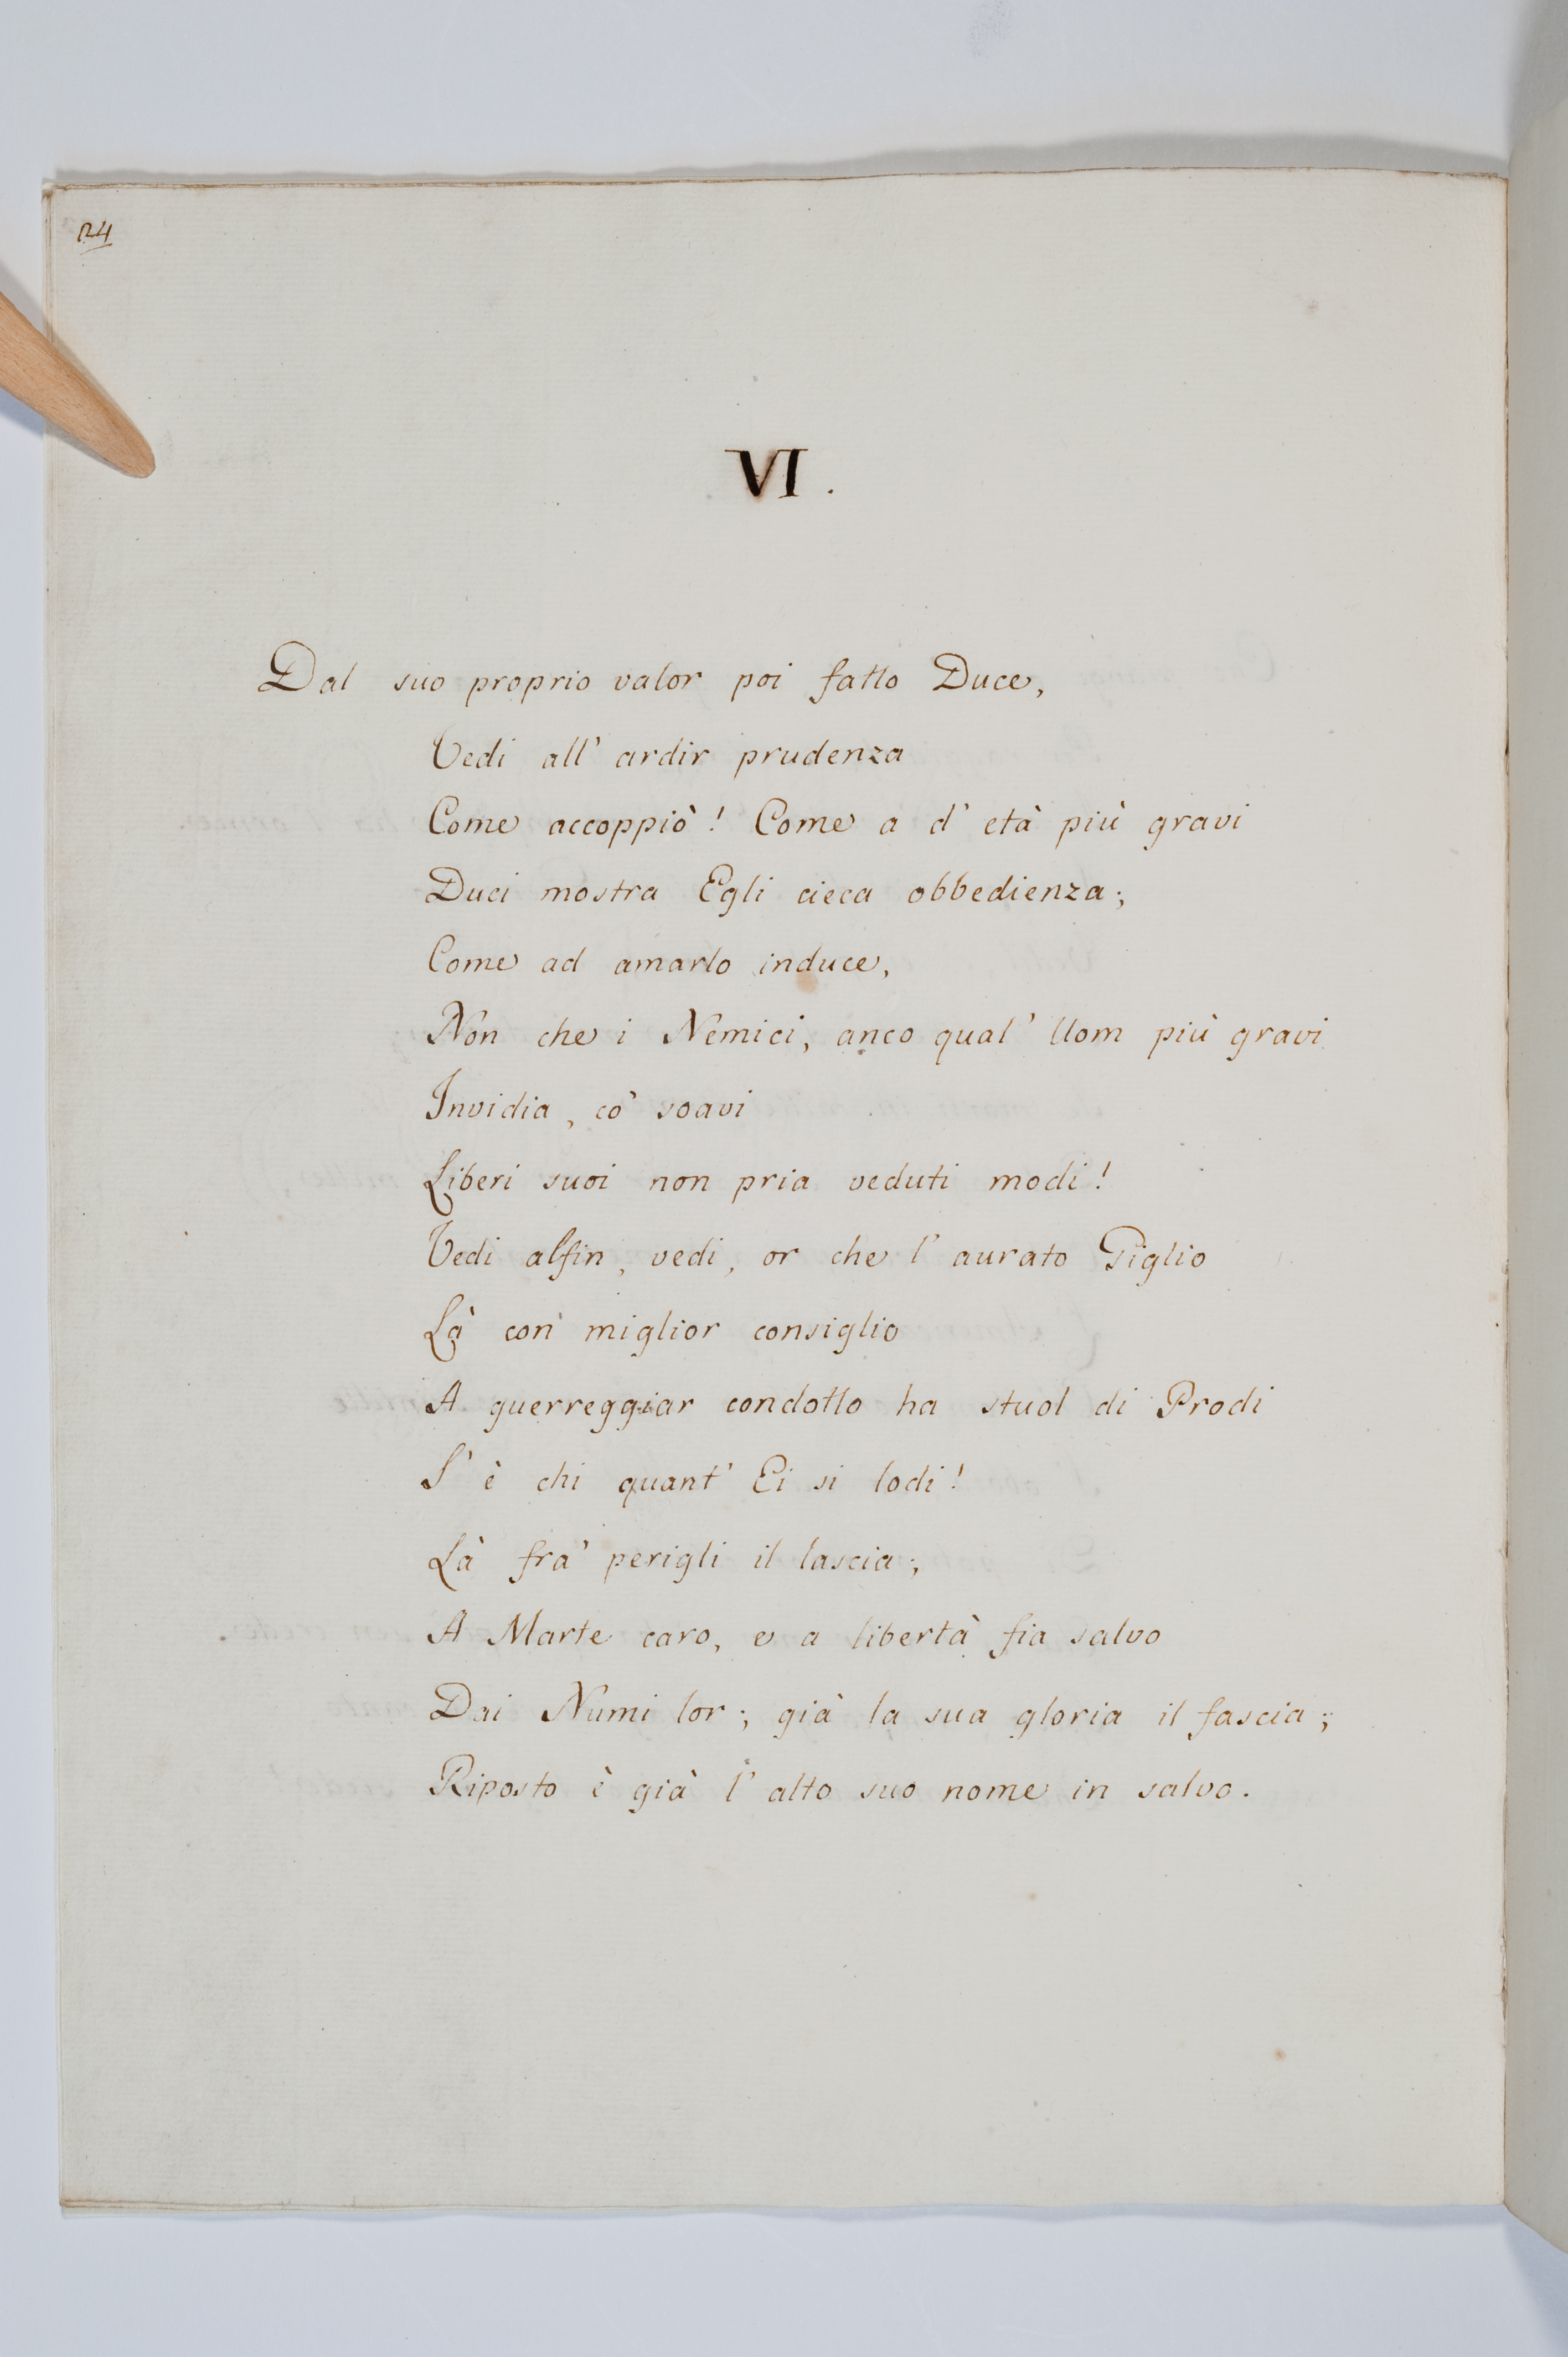 24
VI.
Dal suo proprio valor poi fatto Duce,
Vedi all' ardir prudenza
Come accoppiò! Come a d' età più gravi
Duci mostra Egli cieca obbedienza;
Come ad amarlo induce,
Non che i Nemici, anco qual' Uom più gravi
Invidia, co' soavi
Liberi suoi non pria veduti modi!
Vedi alfin, vedi, or che l' aurato Giglio
Là con miglior consiglio
A guerreggiar condotto ha stuol di Prodi
S' è chi quant' Ei si lodi!
Là fra' perigli il lascia;
A Marte caro, e a libertà fia salvo
Dai Numi lor; già la sua gloria il fascia;
Riposto è già l' alto suo nome in salvo.